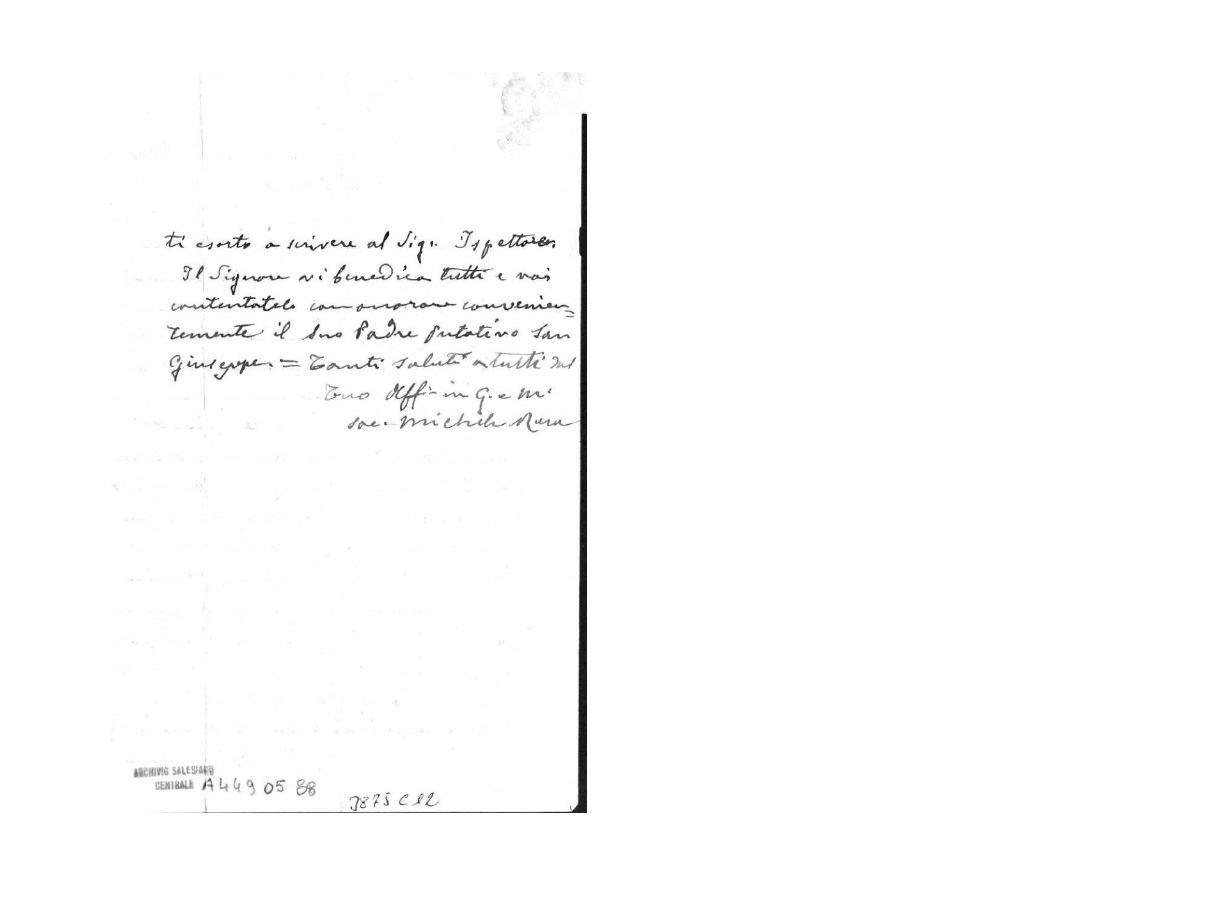 ti esorto a scrivere al Sigr. Ispettore.
Il Signore vi benedica tutti e voi
contentatelo con onorare convenien=
temente il Suo Padre putativo San
Giuseppe. = Tanti saluti a tutti dal
Tuo Aff. in G. e M.
Sac. Michele Rua
ARCHIVIO SALESIANO
CENTRALE A449 05 88
3875 C12